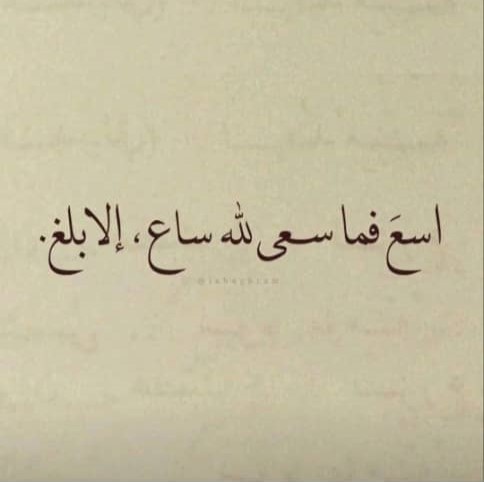 اسعَ فما سعى لله ساع، إلا بلغ.